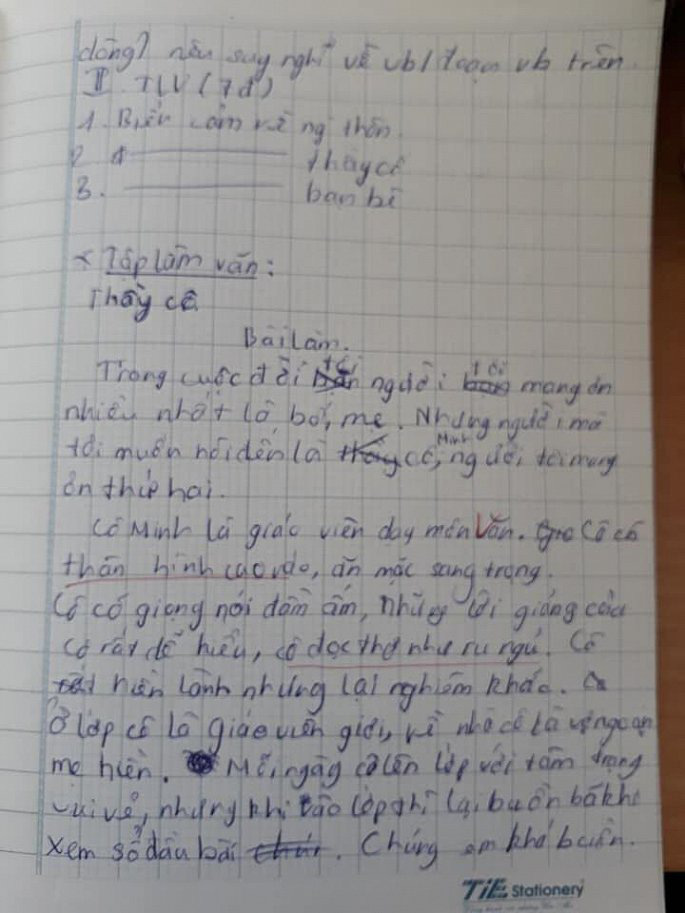 dòng) nêu suy nghĩ về vb/đoạn vb trên.
II. TLV (7đ)
1. Biểu cảm về ng thân
2. thầy cô
3. bạn bè
* Tập làm văn:
Thầy cô
Bài làm.
Trong cuộc đời tôi người tôi mang ơn
nhiều nhất là bố, mẹ. Nhưng người mà
tôi muốn nói đến là cô Minh, người tôi mang
ơn thứ hai.
Cô Minh là giáo viên dạy môn Văn. Cô có
thân hình cao ráo, ăn mặc sang trọng.
Cô có giọng nói đầm ấm, những lời giảng của
cô rất dễ hiểu, cô đọc thơ như ru ngủ. Cô
hiền lành nhưng lại nghiêm khắc.
Ở lớp cô là giáo viên giỏi, về nhà cô là vợ ngoan
mẹ hiền. Mỗi ngày cô lên lớp với tâm trạng
vui vẻ, nhưng khi vào lớp thì lại buồn bã khi
xem sổ đầu bài. Chúng em khá buồn.
TiE Stationery